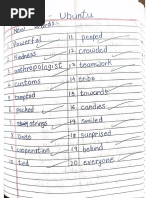 Ubuntu
New words:-
1 Powerful
2 kindness
3 anthropologist
4 customs
5 bumpted
6 packed
7 strings
8 Unite
9 cooperation
10 tied
11 peeped
12 crowded
13 teamwork
14 tribe
15 towards
16 candies
17 smiled
18 surprised
19 behind
20 everyone